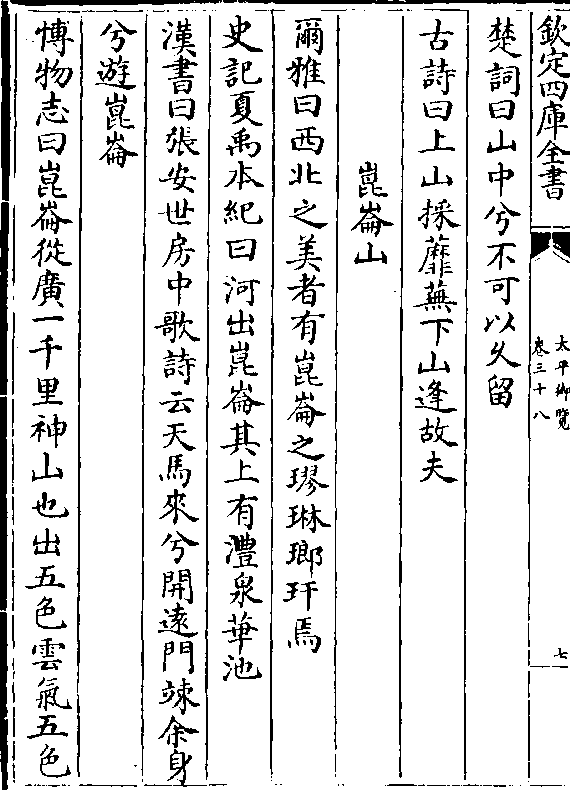 欽定四庫全書
太平御覽
卷三十八
七
楚詞曰山中兮不可以久留
古詩曰上山採蘼蕪下山逢故夫
崑崙山
爾雅曰西北之美者有崑崙之璆琳瑯玕焉
史記夏禹本紀曰河出崑崙其上有灃泉華池
漢書曰張安世房中歌詩云天馬來兮開遠門竦余身
兮遊崑崙
博物志曰崑崙從廣一千里神山也出五色雲氣五色